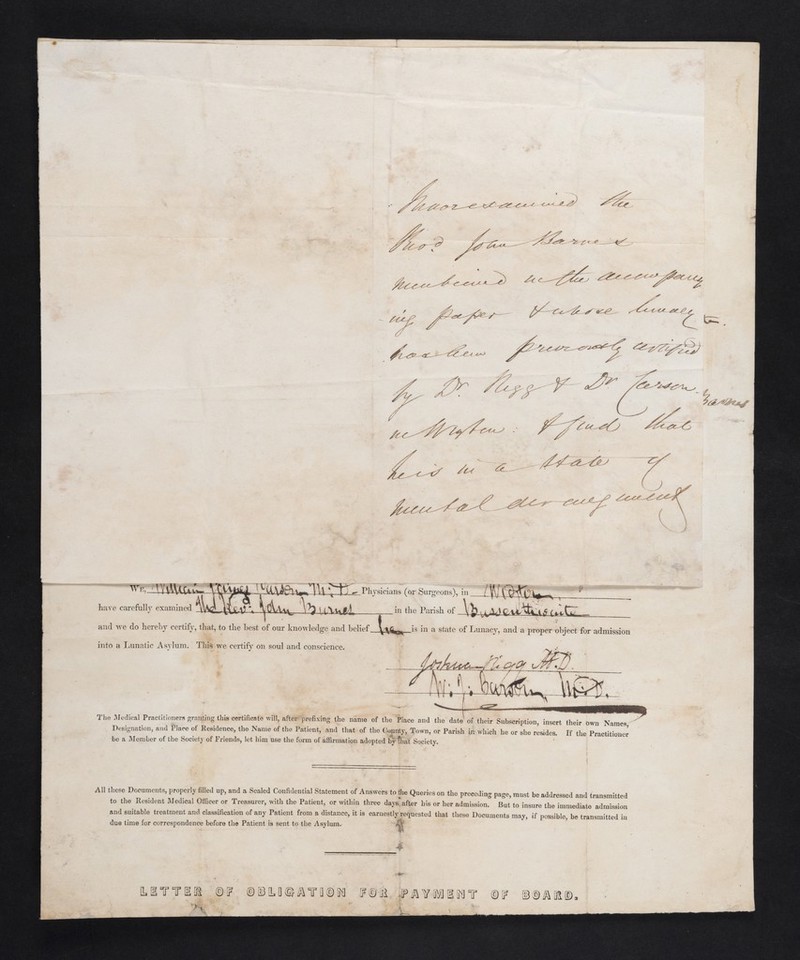 examined the
Revd. John Barnes
mentioned in the accompany
ing paper & whose lunacy
has been previously certified
by Dr. Rigg & Dr Carson
in Wigton: & find that
he is in a state of
mental derangement
Barnes
We, William James Carson M.D. Physicians (or Surgeons), in Wigton,
have carefully examined The Revd. John Barnes in the Parish of Bassenthwaite
and we do hereby certify, that, to the best of our knowledge and belief he is in a state of Lunacy, and a proper object for admission
into a Lunatic Asylum. This we certify on soul and conscience.
Joshua Rigg M.D.
W. J. Carson, M.D.
The Medical Practitioners granting this certificate will, after prefixing the name of the Place and the date of their Subscription, insert their own Names,
Designation, and Place of Residence, the Name of the Patient, and that of the County, Town, or Parish in which he or she resides. If the Practitioner
be a Member of the Society of Friends, let him use the form of affirmation adopted by that Society.
All these Documents, properly filled up, and a Sealed Confidential Statement of Answers to the Queries on the preceding page, must be addressed and transmitted
to the Resident Medical Officer or Treasurer, with the Patient, or within three days after his or her admission. But to insure the immediate admission
and suitable treatment and classification of any Patient from a distance, it is earnestly requested that these Documents may, if possible, be transmitted in
due time for correspondence before the Patient is sent to the Asylum.
LETTER OF OBLIGATION FOR PAYMENT OF BOARD.